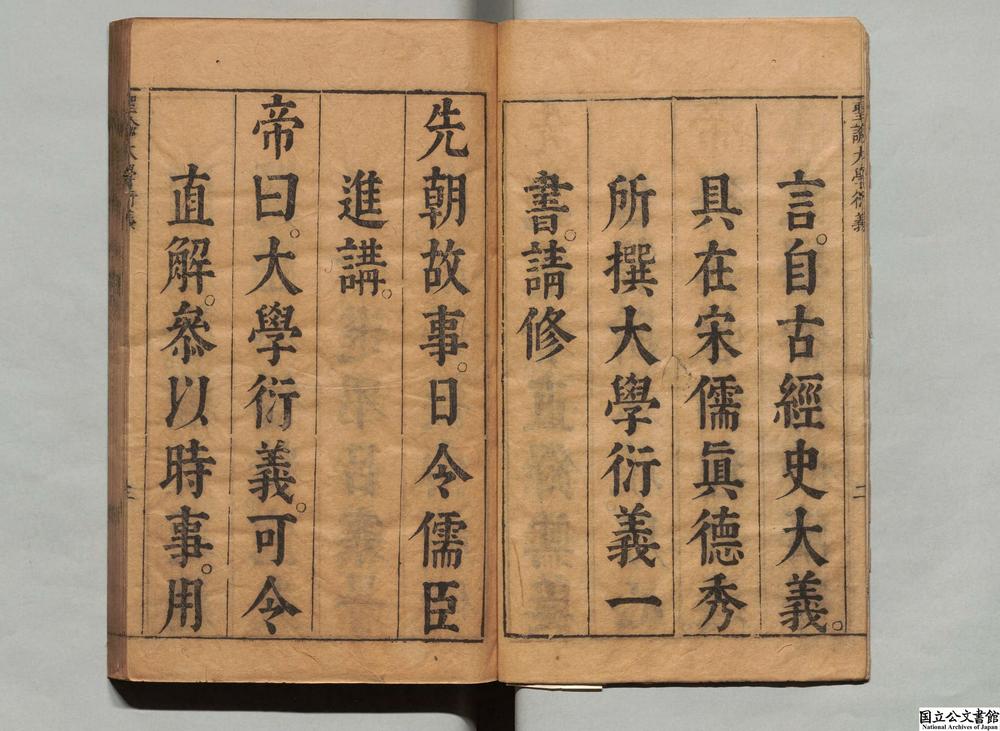 聖諭大學衍義
言。自古經史大義。
具在宋儒眞德秀
所撰大學衍義一
書。請修
二
先朝故事。日令儒臣
進講。
帝曰。大學衍義。可令
直解。叅以時事。用
国立公文書館
National Archives of Japan